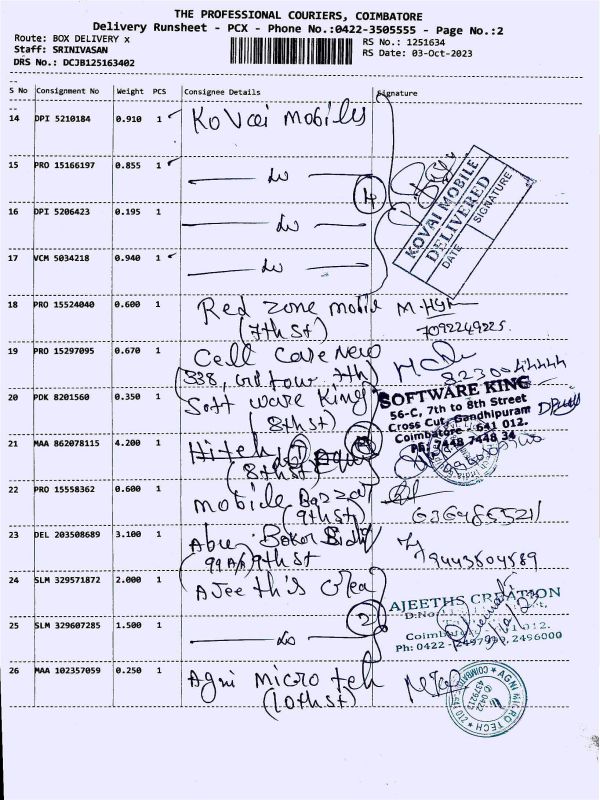 THE PROFESSIONAL COURIERS, COIMBATORE
Delivery Runsheet - PCX - Phone No.:0422-3505555 - Page No.:2
Route: BOX DELIVERY x
Staff: SRINIVASAN
DRS No.: DCJB125163402
RS No.: 1251634
RS Date: 03-Oct-2023
S No Consignment No Weight PCS Consignee Details Signature
14 DPI 5210184 0.910 1 Kovai mobiles
15 PRO 15166197 0.855 1 do
16 DPI 5206423 0.195 1 do
17 VCM 5034218 0.940 1 do
4
KOVAI MOBILE
DELIVERED
DATE SIGNATURE
18 PRO 15524040 0.600 1 Red zone mobile
(7th st)
7092249225
19 PRO 15297095 0.670 1 Cell Care New
338,
20 PDK 8201560 0.350 1 Soft ware King
(8th st)
SOFTWARE KING
56-C, 7th to 8th Street
Cross Cut, Gandhipuram
Coimbatore - 641 012.
PH: 7448 7448 34
21 MAA 862078115 4.200 1 Hitech
(8th st)
22 PRO 15558362 0.600 1 mobile Bazzar
(9th st)
23 DEL 203508689 3.100 1 Abu Baker
9th st
9443504589
24 SLM 329571872 2.000 1 Ajeeth's Crea
2
AJEETHS CREATION
D.No.
Coimbatore 012.
Ph: 0422 - 2497999, 2496000
25 SLM 329607285 1.500 1 do
26 MAA 102357059 0.250 1 Agni micro teh
(10th st)
AGNI MICRO TECH
COIMBATORE-641 012
0422
4379212